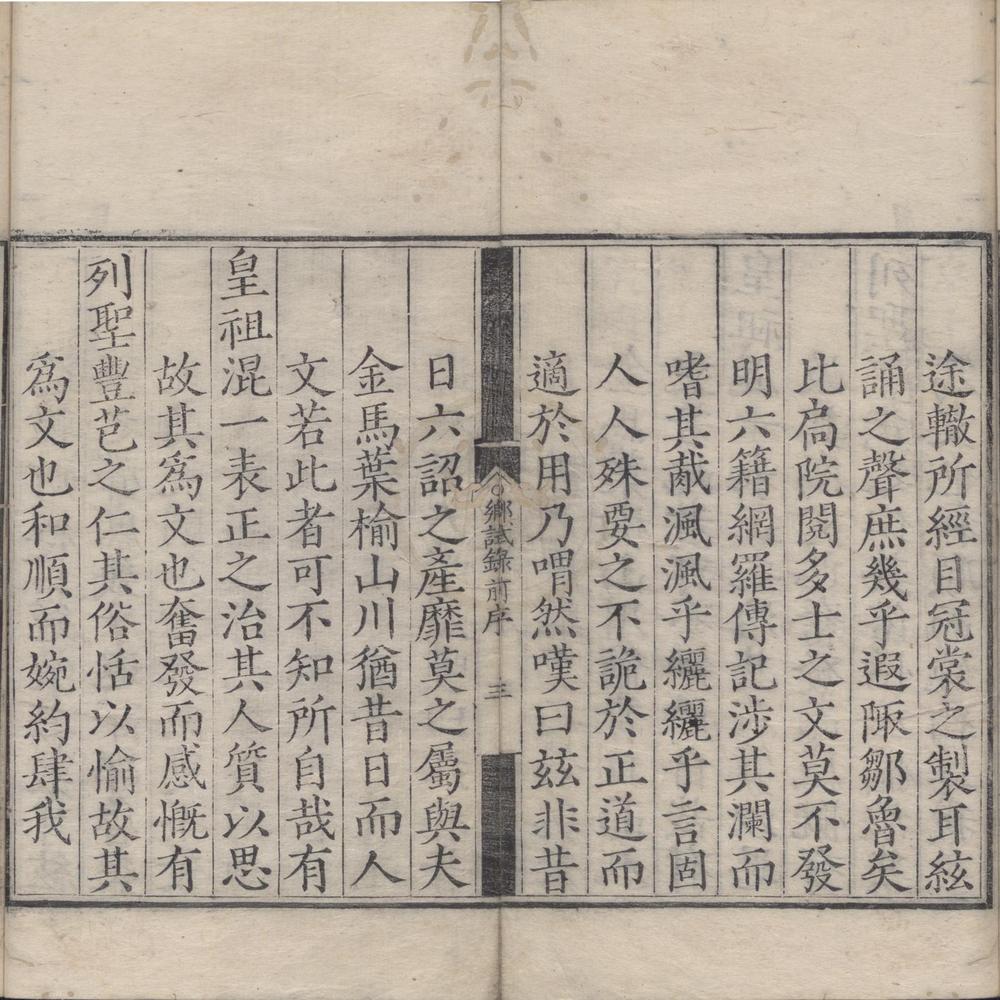 途轍所經目冠裳之製耳絃
誦之聲庶幾乎遐陬鄒魯矣
比扄院閱多士之文莫不發
明六籍網羅傳記涉其瀾而
嗜其胾渢渢乎纚纚乎言固
人人殊要之不詭於正道而
適於用乃喟然嘆曰玆非昔
鄉試錄前序 三
日六詔之產靡莫之屬與夫
金馬葉榆山川猶昔日而人
文若此者可不知所自哉有
皇祖混一表正之治其人質以思
故其爲文也奮發而感慨有
列聖豐芑之仁其俗恬以愉故其
爲文也和順而婉約肆我